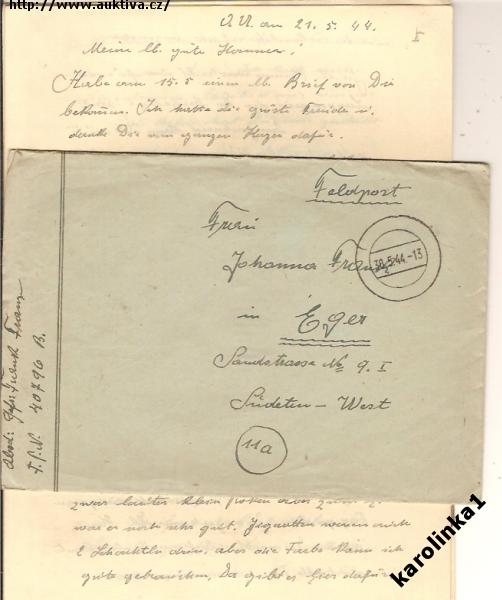 http://www.auktiva.cz/
O.U. am 21.5.44.
I
Meine lb. gute Hanner!
Habe am 15.5 einen lb. Brief von Dir
bekommen. Ich hatte die größte Freude u.
danke Dir vom ganzen Herzen dafür.
Feldpost
Frau
Johanna Franz
30.5.44.-13
in Eger
Sandstrasse No 9. I
Sudeten-West
11a
Absd: Gefr. Franz
F.P.N. 40796 B.
zwar lauter klein
war es noch sehr gut. Zigaretten waren auch
2 Schachteln drin, aber die Farbe kann ich
gute gebrauchen. Da gibt es hier dafür
karolinka1